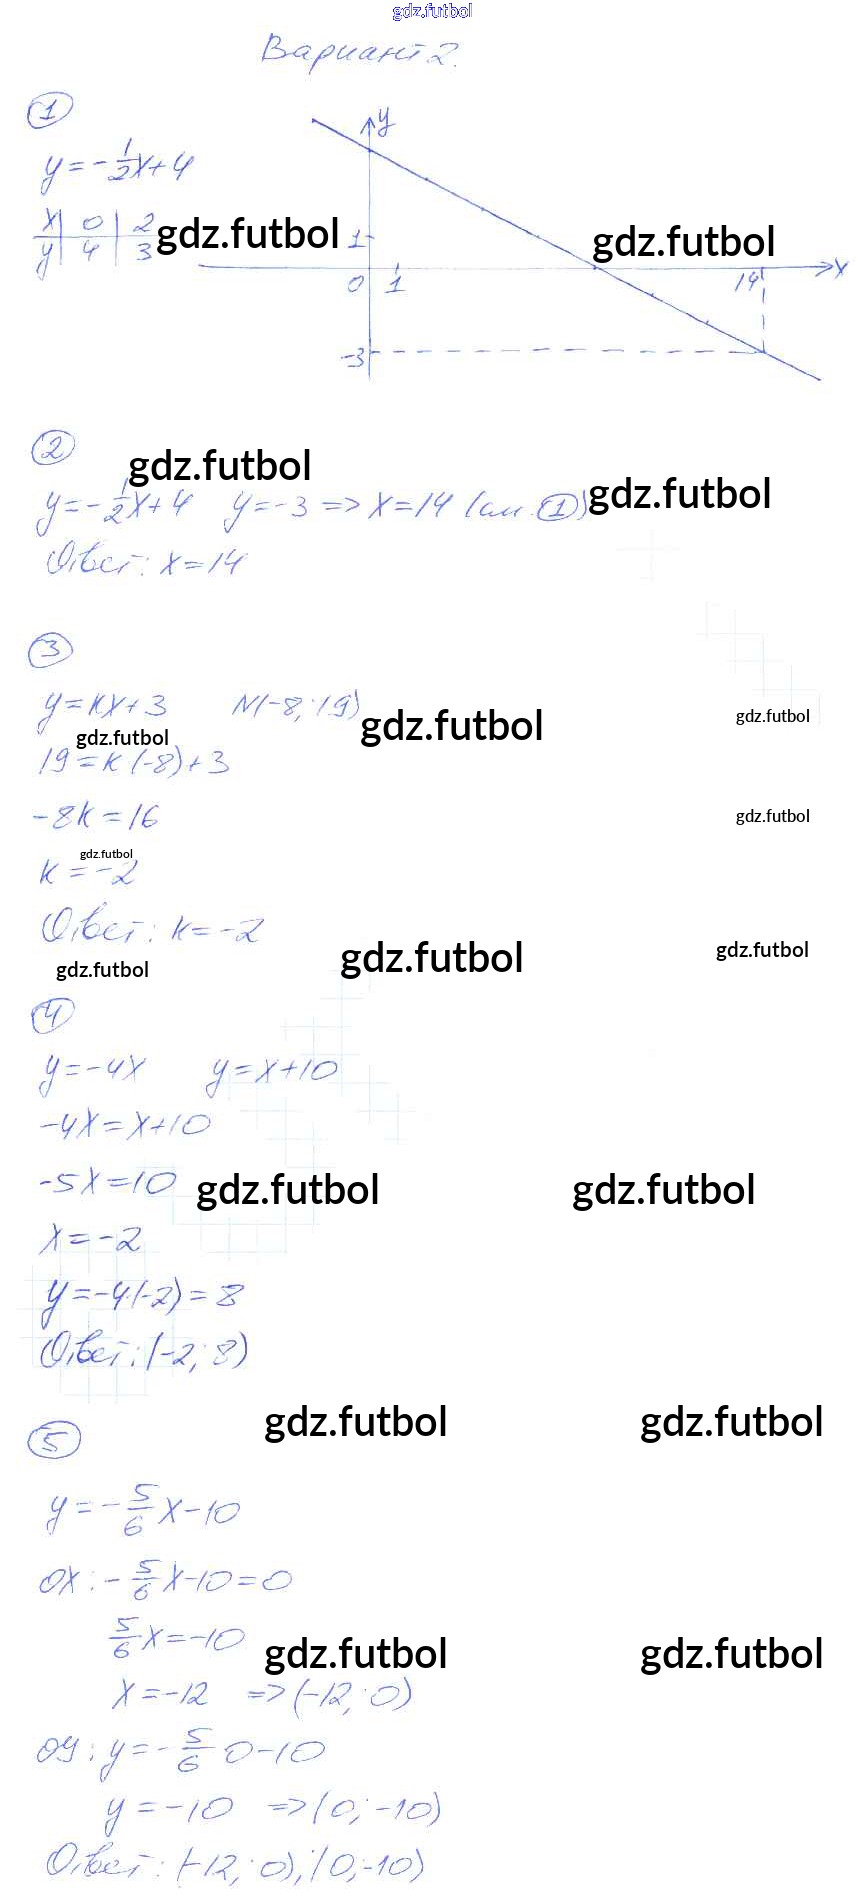 gdz.futbol
Вариант 2.
1
y = -1/2x + 4
x | 0 | 2
y | 4 | 3
gdz.futbol
gdz.futbol
y
1
0 1
14
x
-3
2
gdz.futbol
y = -1/2x + 4 y = -3 => x = 14 (см. 1)
gdz.futbol
Ответ: x = 14
3
y = kx + 3 N(-8; 19)
gdz.futbol
gdz.futbol
gdz.futbol
19 = k(-8) + 3
-8k = 16
gdz.futbol
gdz.futbol
k = -2
Ответ: k = -2
gdz.futbol
gdz.futbol
gdz.futbol
4
y = -4x y = x + 10
-4x = x + 10
-5x = 10
gdz.futbol
gdz.futbol
x = -2
y = -4·(-2) = 8
Ответ: (-2; 8)
gdz.futbol
gdz.futbol
5
y = -5/6x - 10
OX: -5/6x - 10 = 0
5/6x = -10
gdz.futbol
gdz.futbol
x = -12 => (-12; 0)
OY: y = -5/6·0 - 10
y = -10 => (0; -10)
Ответ: (-12; 0), (0; -10)